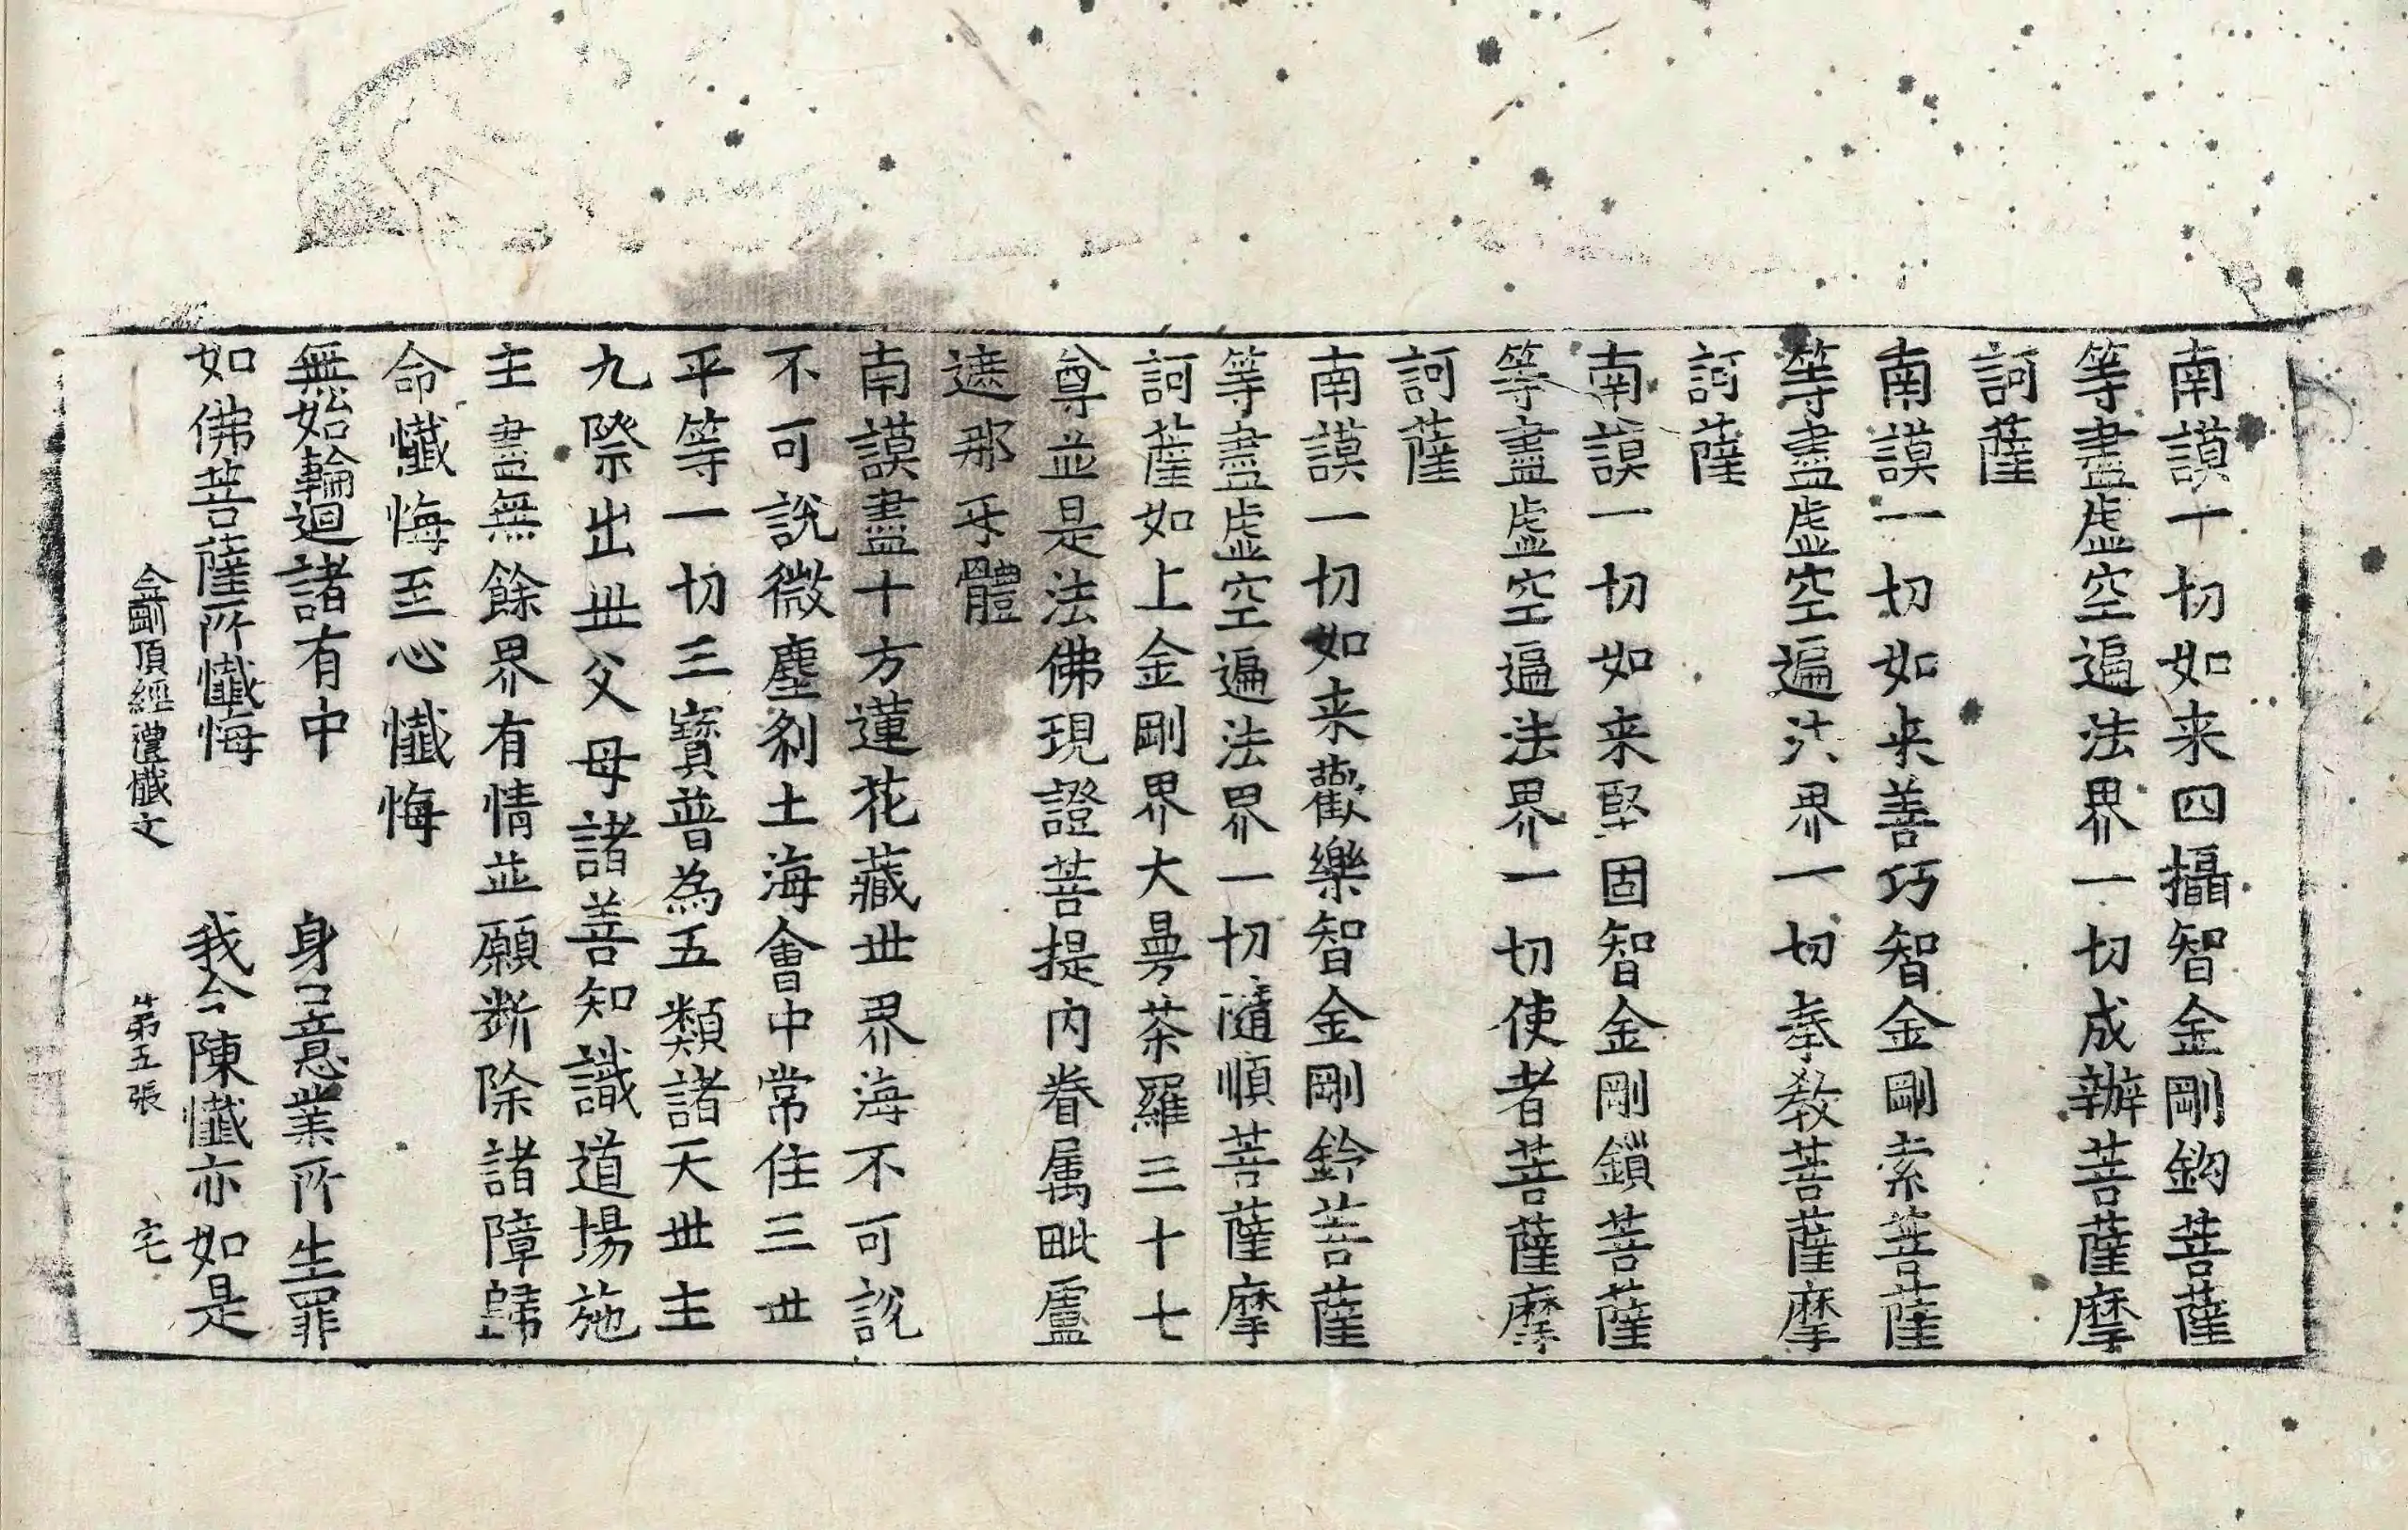 南謨一切如来四攝智金剛鈎菩薩
等盡虛空遍法界一切成辦菩薩摩
訶薩
南謨一切如来善巧智金剛索菩薩
等盡虛空遍法界一切奉教菩薩摩
訶薩
南謨一切如来堅固智金剛鎖菩薩
等盡虛空遍法界一切使者菩薩摩
訶薩
南謨一切如来歡樂智金剛鈴菩薩
等盡虛空遍法界一切隨順菩薩摩
訶薩如上金剛界大曼荼羅三十七
尊並是法佛現證菩提内眷属毗盧
遮那互體
南謨盡十方蓮花藏世界海不可說
不可說微塵刹土海會中常住三世
平等一切三寶普為五類諸天世主
九祭出世父母諸善知識道場施
主盡無餘界有情並願斷除諸障歸
命懺悔至心懺悔
無始輪迴諸有中 身口意業所生罪
如佛菩薩所懺悔 我今陳懺亦如是
金剛頂經禮懺文 第五張 宅